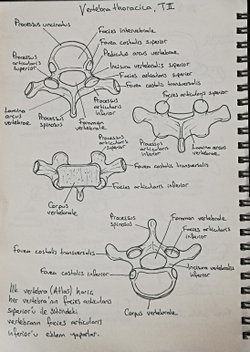 Vertebra thoracica, T II
Processus uncinatus
Facies intervertebrale
Fovea costalis superior
Pediculus arcus vertebrae
Incisura vertebralis superior
Facies articularis superior
Fovea costalis transversalis
Processus
articularis
superior
Lamina
arcus
vertebrae
Processus
spinosus
Foramen
vertebrale
Processus
articularis
inferior
Facies articularis superior
Processus
articularis
inferior
Lamina arcus
vertebrae
Processus
articularis
superior
Fovea costalis transversalis
Facies articularis inferior
Corpus
vertebrale
Processus
spinosus
Foramen
vertebrale
Facies articularis
inferior
Fovea costalis transversalis
Fovea costalis inferior
Incisura
vertebralis
inferior
Corpus vertebrale
İlk vertebra (Atlas) hariç
her vertebra'nın facies articularis
superior'u de üstündeki
vertebranın facies articularis
inferior'u eklem yaparlar.